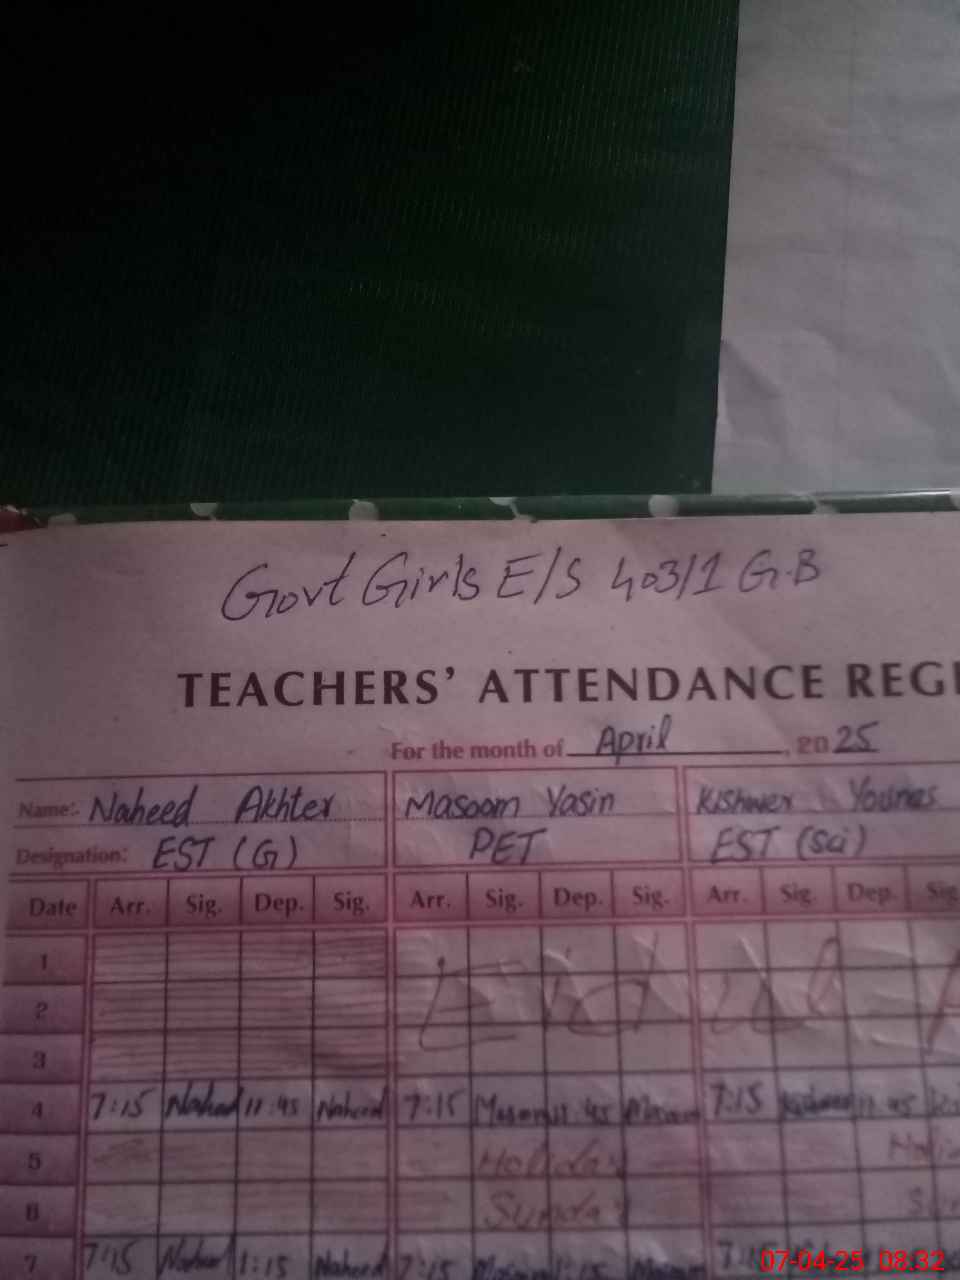 Govt Girls E/S 403/1 G.B
TEACHERS' ATTENDANCE REGI
For the month of April, 2025
Name: Naheed Akhter Masoom Yasin Kishwer Younas
Designation: EST (G) PET EST (Sci)
Date Arr. Sig. Dep. Sig. Arr. Sig. Dep. Sig. Arr. Sig. Dep. Sig
1
2 Eid ul
3
4 7:15 Naheed 11:45 Naheed 7:15 Masoom 11:45 Masoom 7:15 11:45
5 Holiday
6 Sunday
7 7:15 Naheed 1:15 Naheed 7:15 Masoom 1:15 Masoom 7:15
07-04-25 08:32